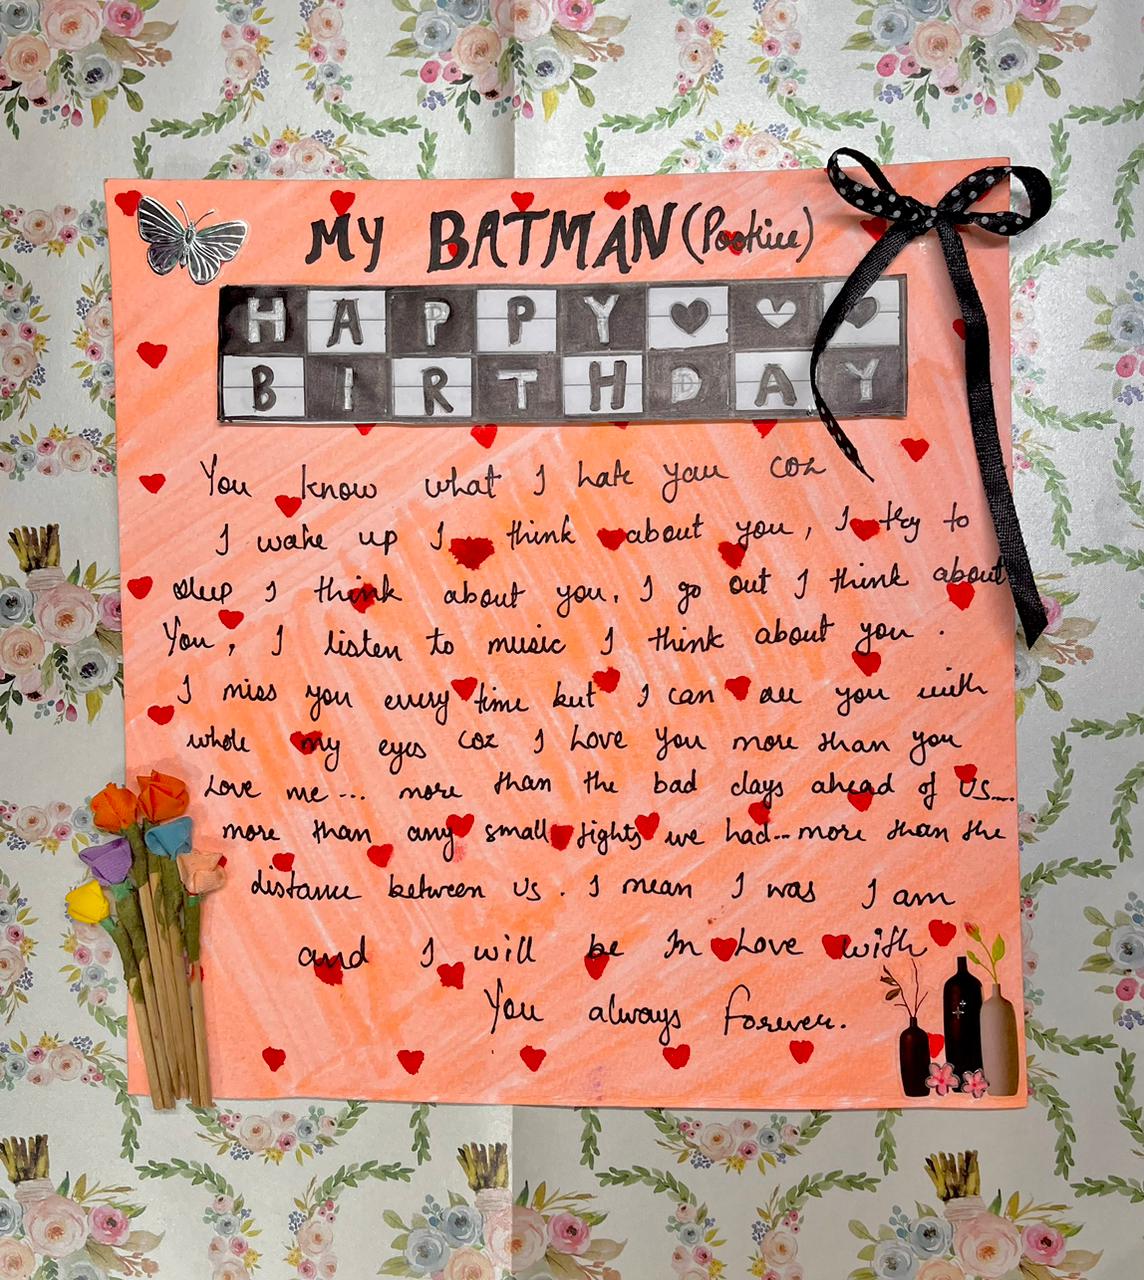 MY BATMAN (Pookiee)
HAPPY
BIRTHDAY
You know what I hate you coz
I wake up I think about you, I try to
sleep I think about you, I go out I think about
You, I listen to music I think about you.
I miss you every time but I can see you with
whole my eyes coz I Love you more than you
Love me... more than the bad days ahead of US....
more than any small fights we had...more than the
distance between us. I mean I was I am
and I will be In Love with
You always forever.